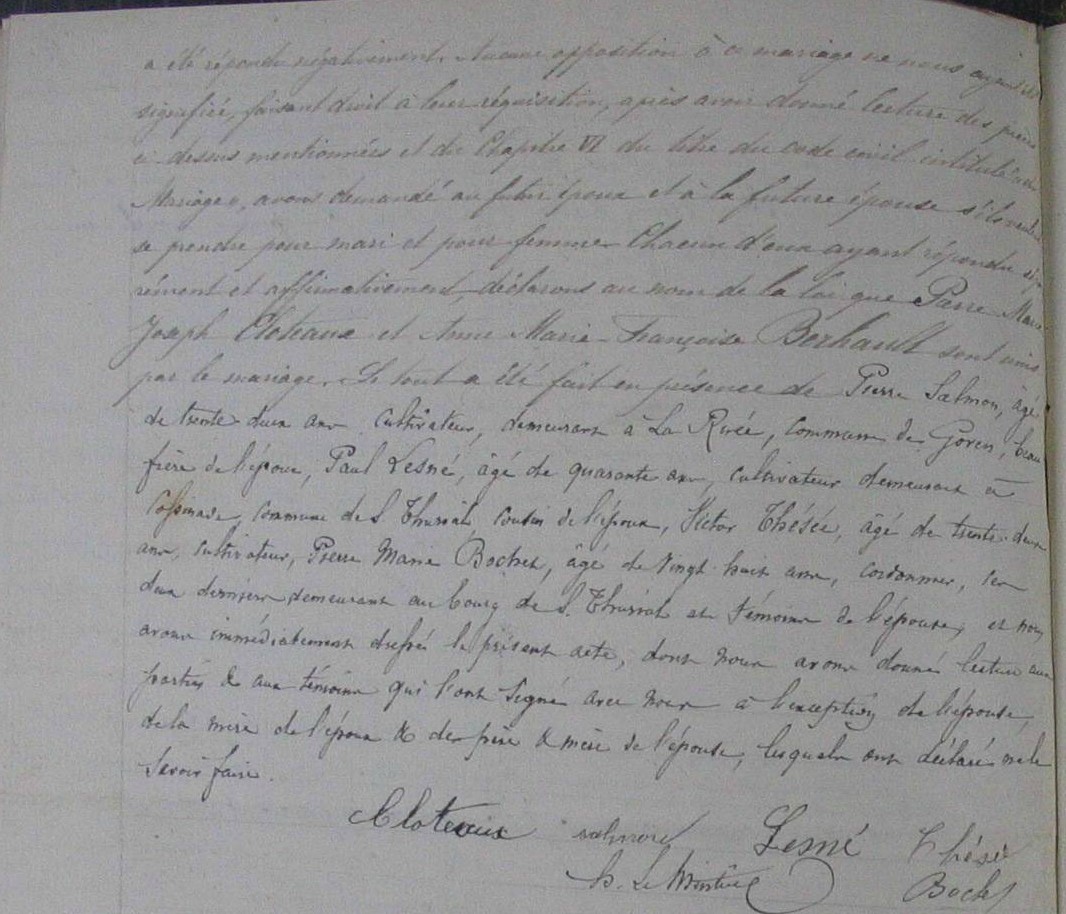 a été répondu négativement. Aucune opposition à ce mariage ne nous ayant été
signifiée, faisant droit à leur réquisition, après avoir donné lecture des pièces
ci-dessus mentionnées et du Chapitre VI du titre du code civil intitulé « du
Mariage », avons demandé au futur époux et à la future épouse s'ils veulent
se prendre pour mari et pour femme. Chacun d'eux ayant répondu sépa
rément et affirmativement, déclarons au nom de la loi que Pierre Marie
Joseph Cloteaux et Anne Marie Françoise Berhault sont unis
par le mariage. Le tout a été fait en présence de Pierre Salmon, âgé
de trente deux ans cultivateur, demeurant à La Rivée, commune de Goven, beau
frère de l'époux, Paul Lesné, âgé de quarante ans, cultivateur demeurant à
commune de St Thurial, cousin de l'époux, Victor Thésée, âgé de trente deux
ans, cultivateur, Pierre Marie Bochet, âgé de vingt huit ans, cordonnier, ces
deux derniers demeurant au bourg de St Thurial et témoins de l'épouse, et nous
avons immédiatement dressé le présent acte, dont nous avons donné lecture aux
parties & aux témoins qui l'ont signé avec nous à l'exception de l'épouse,
de la mère de l'époux & des père & mère de l'épouse, lesquels ont déclaré ne le
savoir faire.
Cloteaux salmon Lesné Thésée
Bochet